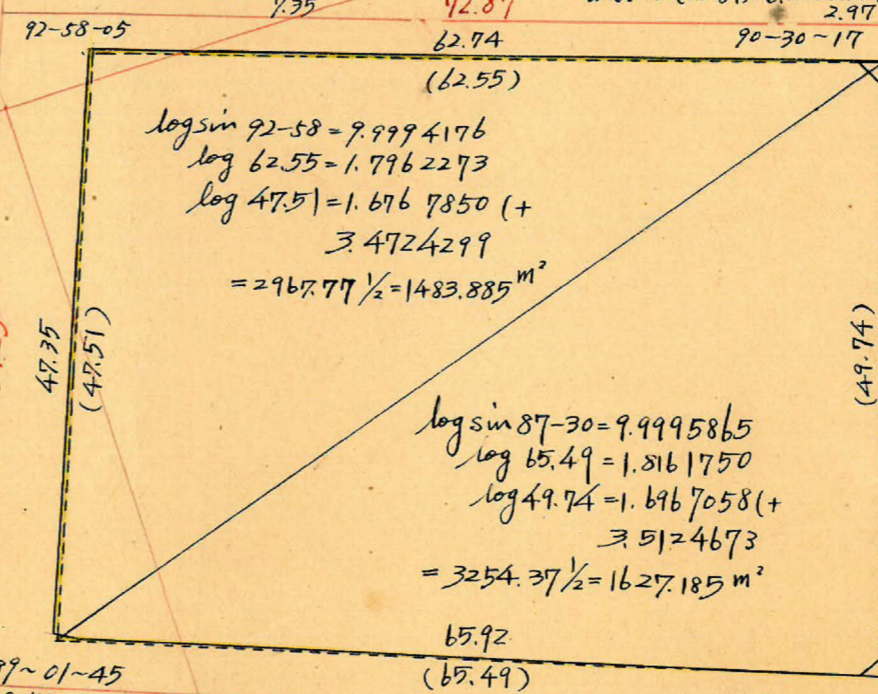 7.35
72.87
2.97
92-58-05
62.74
90-30~17
(62.55)
log sin 92-58=9.9994176
log 62.55=1.7962273
log 47.51=1.6767850 (+
3.4724299
=2967.77 1/2=1483.885 m²
47.35
(47.51)
(49.74)
log sin 87-30=9.9995865
log 65.49=1.8161750
log 49.74=1.6967058(+
3.5124673
=3254.37 1/2=1627.185 m²
65.92
(65.49)
~01~45